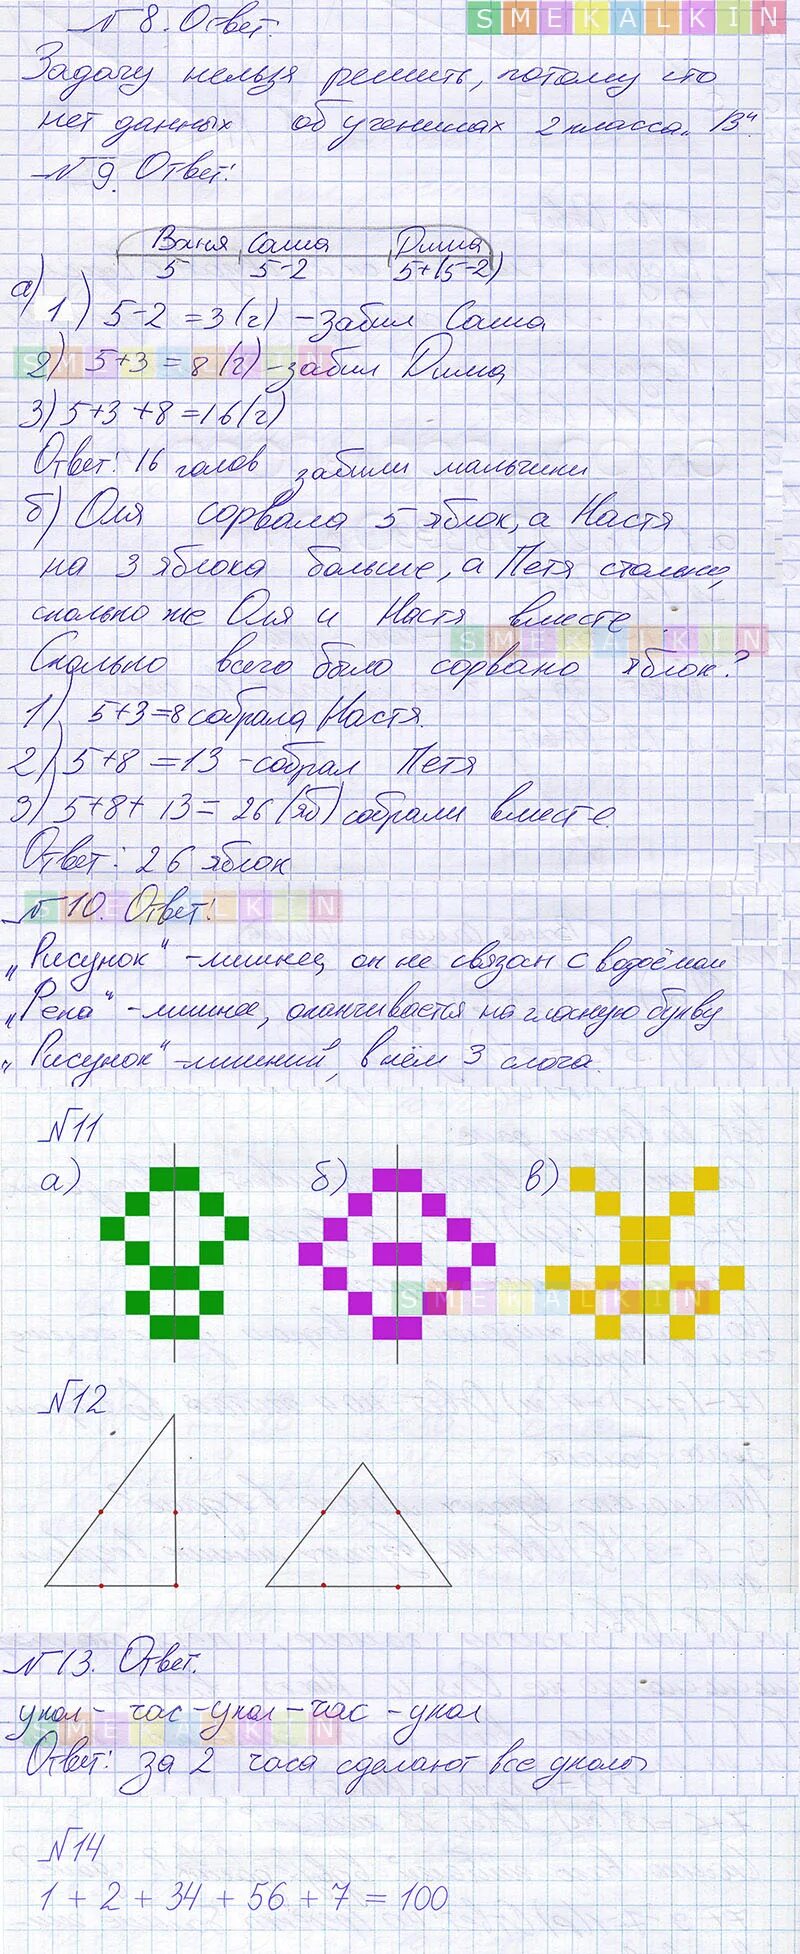 №8. Ответ.
SMEKALKIN
Задачу нельзя решить, потому что
нет данных об учениках 2 класса „В".
№9. Ответ:
Ваня Саша Дима
5 5-2 5+(5-2)
а) 1) 5-2=3(г) - забил Саша
2) 5+3=8(г) - забил Дима
SMEKALKIN
3) 5+3+8=16(г)
Ответ: 16 голов забили мальчики
б) Оля сорвала 5 яблок, а Настя
на 3 яблока больше, а Петя столько,
сколько же Оля и Настя вместе.
SMEKALKIN
Сколько всего было сорвано яблок?
1) 5+3=8 собрала Настя.
2) 5+8=13 - собрал Петя
3) 5+8+13=26(яб) собрали вместе.
Ответ: 26 яблок
№10. Ответ:
SMEKALKIN
„Рисунок" - лишнец, он не связан с водоёмом
„Репа" - лишнее, оканчивается на гласную букву
„Рисунок" - лишний, в нём 3 слога.
№11
а) б) в)
SMEKALKIN
№12
№13. Ответ.
укол - час - укол - час - укол
SMEKALKIN
Ответ: за 2 часа сделают все уколы
№14
1 + 2 + 34 + 56 + 7 = 100